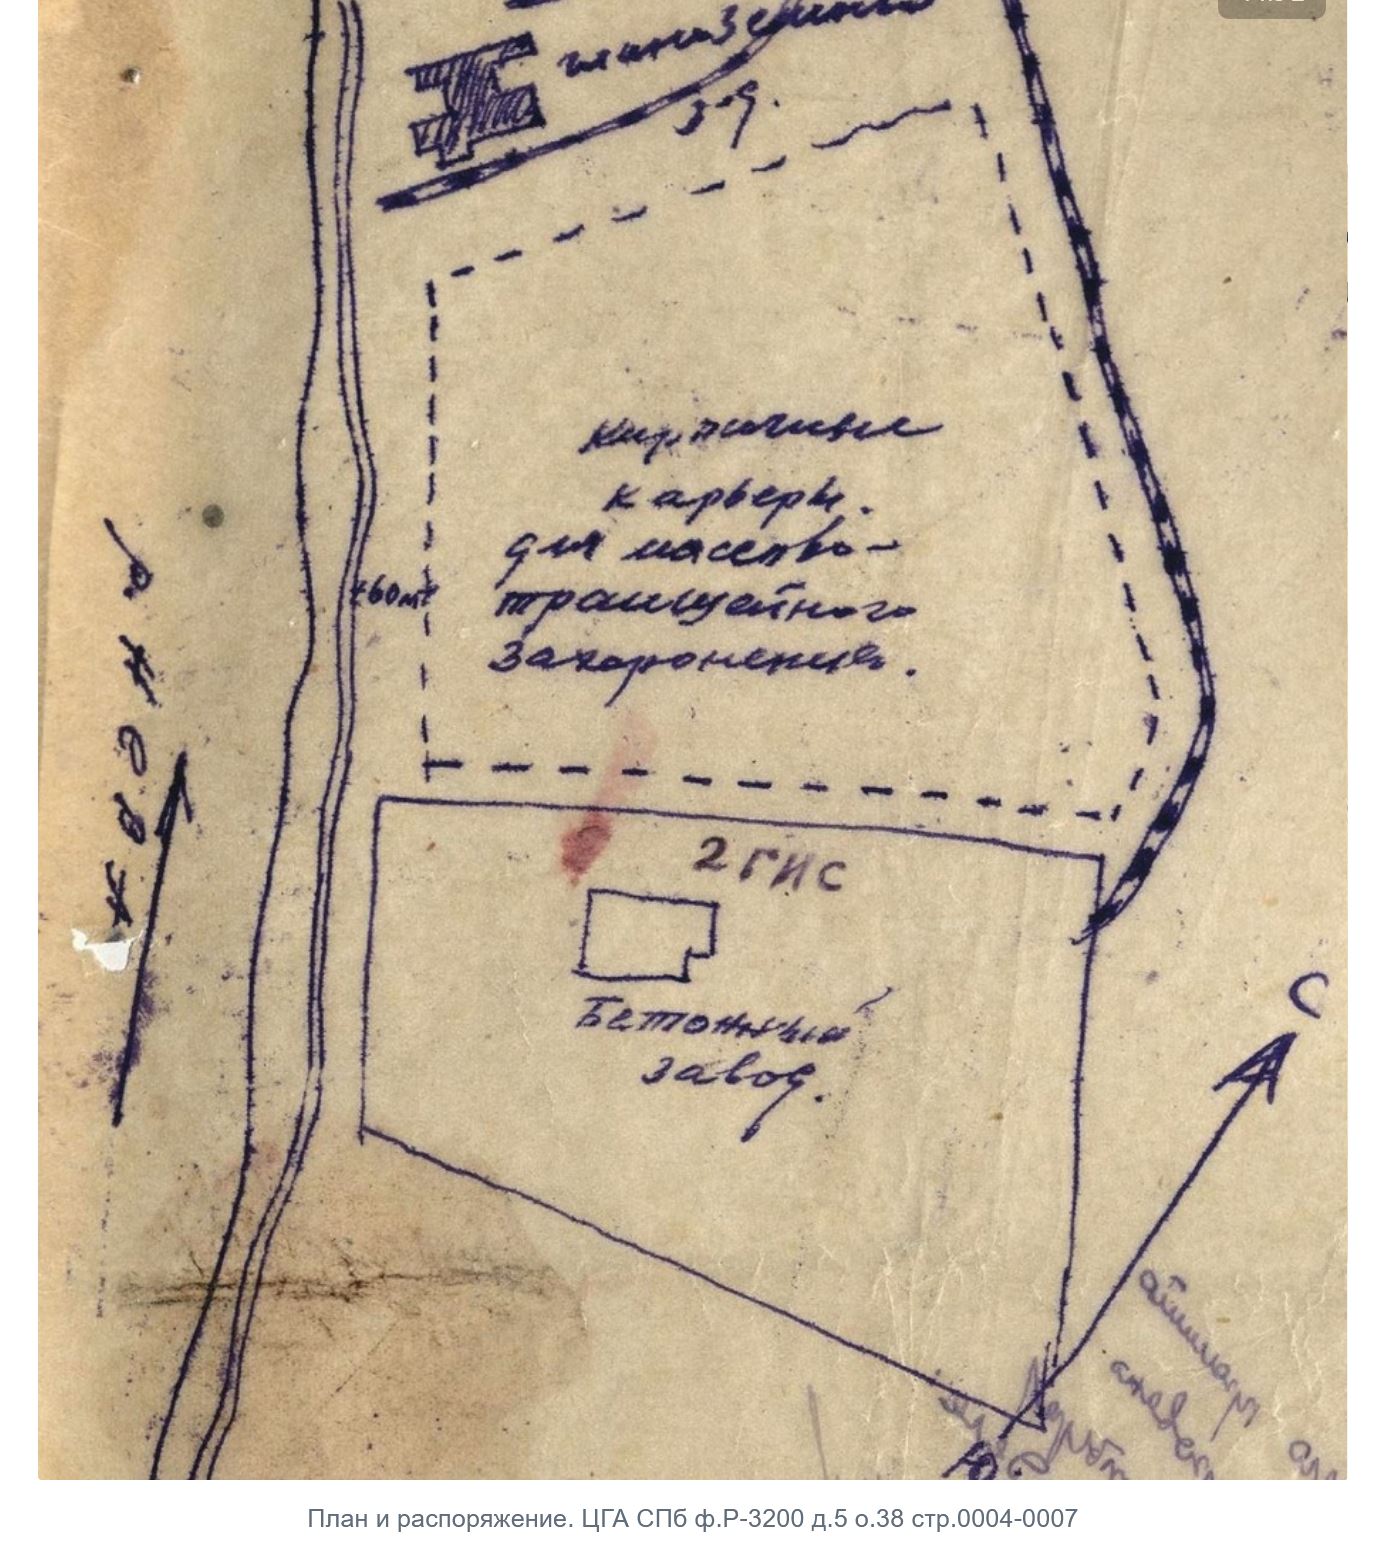 з-д.
Кирпичные
карьеры.
для массово-
траншейного
захоронения.
60м
р. Нева
2 ГИС
Бетонный
завод.
С
Ю.
План и распоряжение. ЦГА СПб ф.Р-3200 д.5 о.38 стр.0004-0007